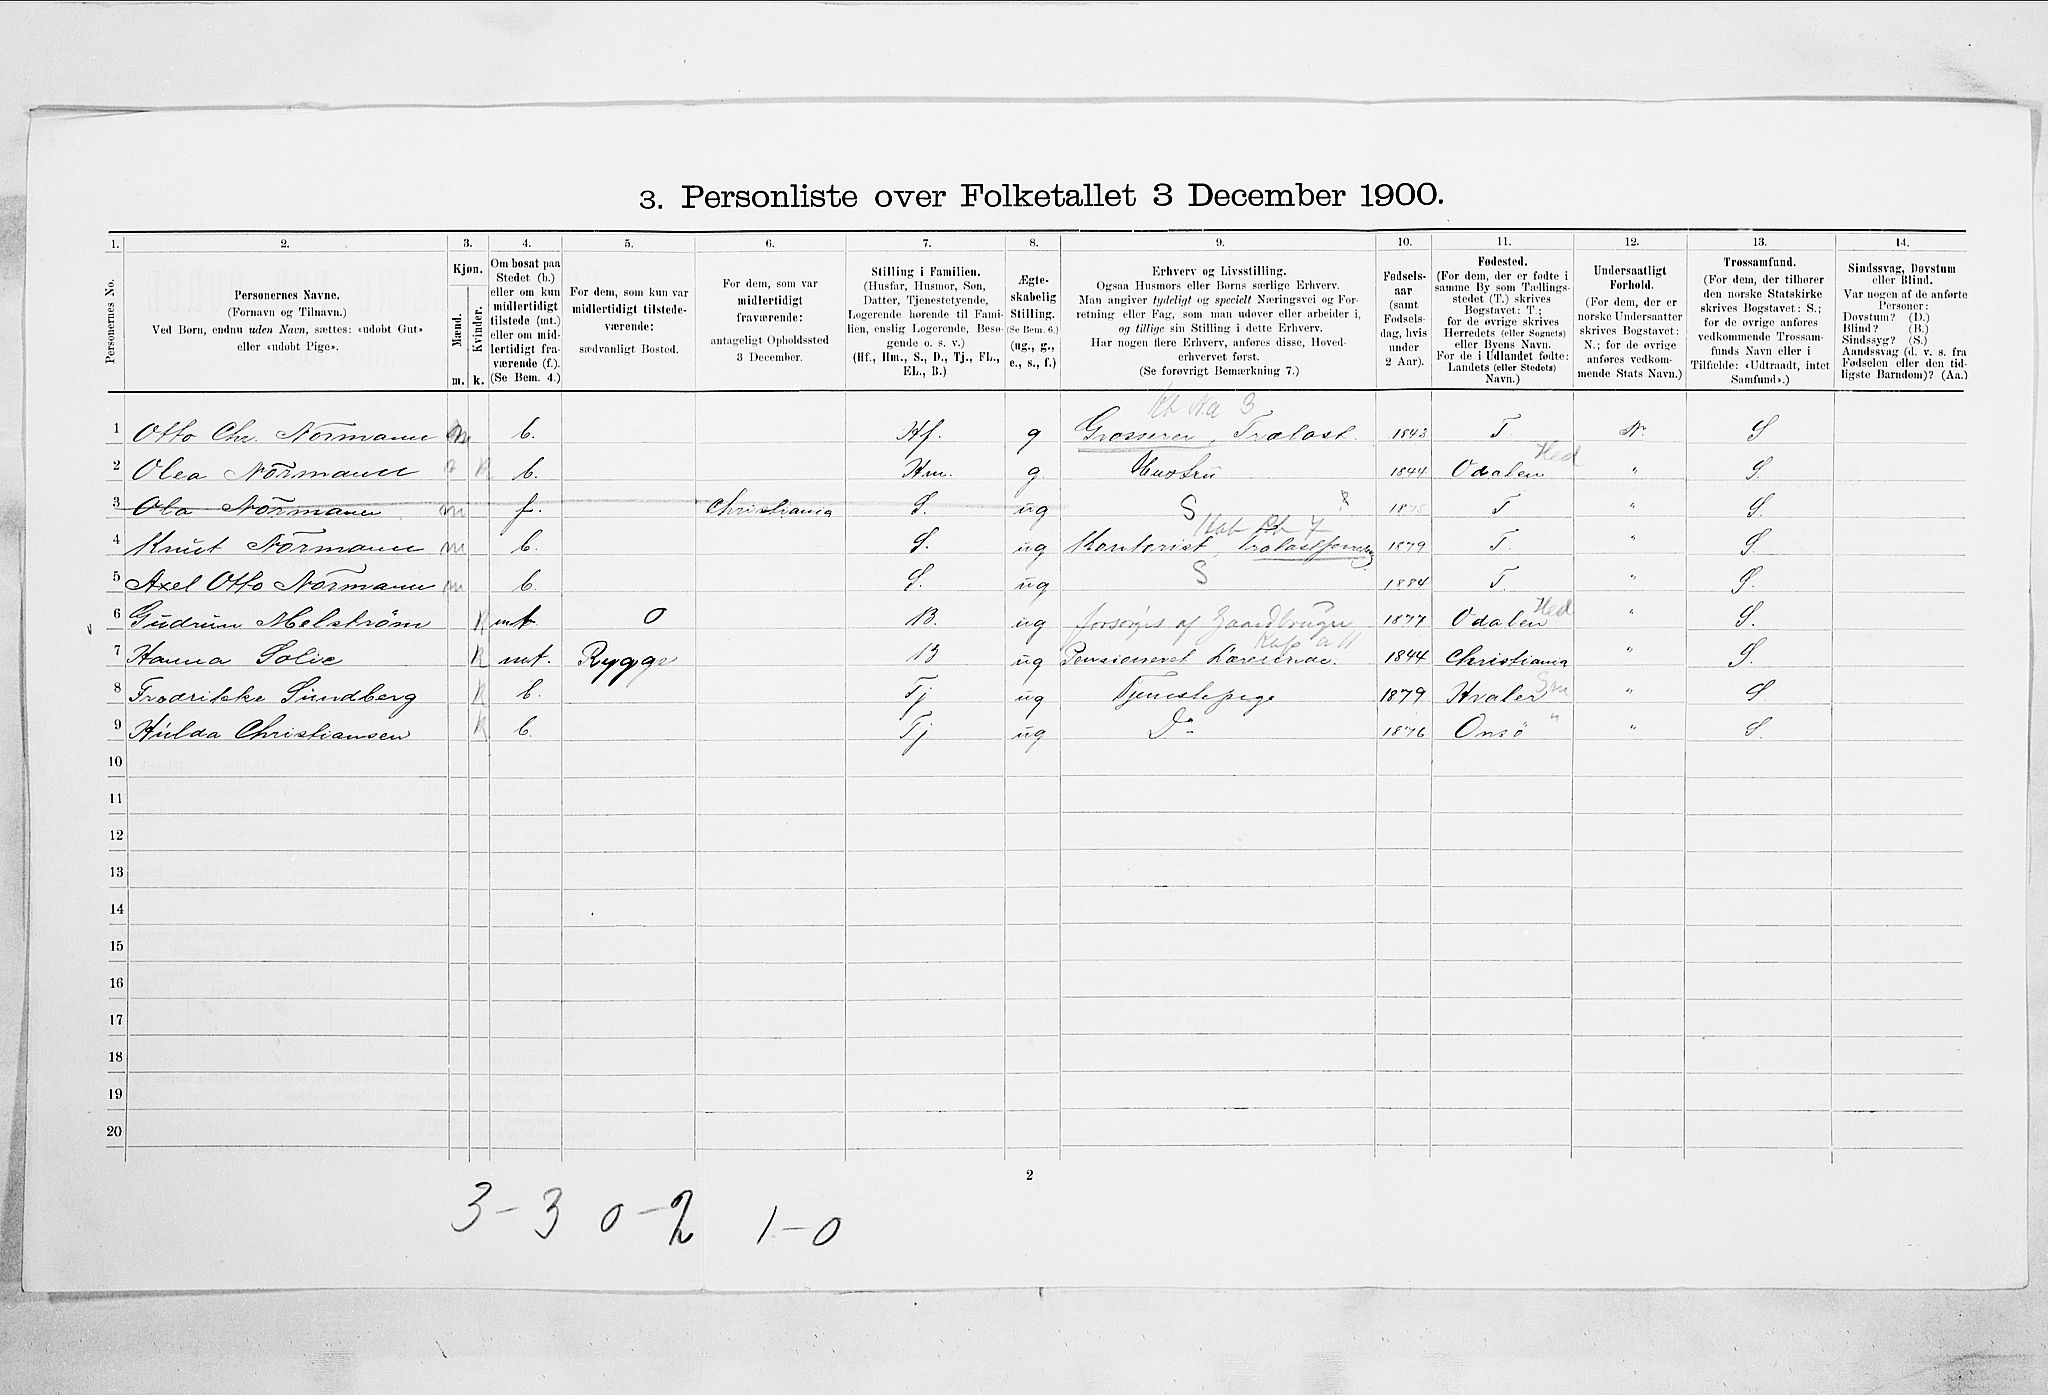 3. Personliste over Folketallet 3 December 1900.
1. 2. 3. 4. 5. 6. 7. 8. 9. 10. 11. 12. 13. 14.
Personernes No.
Personernes Navne.
(Fornavn og Tilnavn.)
Ved Børn, endnu uden Navn, sættes: «udøbt Gut»
eller «udøbt Pige».
Kjøn.
Mænd.
m.
Kvinder.
k.
Om bosat paa
Stedet (b.)
eller om kun
midlertidigt
tilstede (mt.)
eller om mid-
lertidigt fra-
værende (f.).
(Se Bem. 4.)
For dem, som kun var
midlertidigt tilstede-
værende:
sædvanligt Bosted.
For dem, som var
midlertidigt
fraværende:
antageligt Opholdssted
3 December.
Stilling i Familien.
(Husfar, Husmor, Søn,
Datter, Tjenestetyende,
Logerende hørende til Fami-
lien, enslig Logerende, Besø-
gende o. s. v.)
(Hf., Hm., S., D., Tj., FL.,
EL., B.)
Ægte-
skabelig
Stilling.
(Se Bem. 6.)
(ug., g.,
e., s., f.)
Erhverv og Livsstilling.
Ogsaa Husmors eller Børns særlige Erhverv.
Man angiver tydeligt og specielt Næringsvei og For-
retning eller Fag, som man udøver eller arbeider i,
og tillige sin Stilling i dette Erhverv.
Har nogen flere Erhverv, anføres disse, Hoved-
erhvervet først.
(Se forøvrigt Bemærkning 7.)
Fødsels-
aar
(samt
Fødsels-
dag, hvis
under
2 Aar).
Fødested.
(For dem, der er fødte i
samme By som Tællings-
stedet (T.) skrives
Bogstavet: T.;
for de øvrige skrives
Herredets (eller Sognets)
eller Byens Navn.
For de i Udlandet fødte:
Landets (eller Stedets)
Navn.)
Undersaatligt
Forhold.
(For dem, der er
norske Undersaatter
skrives Bogstavet:
N.; for de øvrige
anføres vedkom-
mende Stats Navn.)
Trossamfund.
(For dem, der tilhører
den norske Statskirke
skrives Bogstavet: S.;
for de øvrige anføres
vedkommende Trossam-
funds Navn eller i
Tilfælde: «Udtraadt, intet
Samfund».)
Sindssvag, Døvstum
eller Blind.
Var nogen af de anførte
Personer:
Døvstum? (D.)
Blind? (B.)
Sindssyg? (S.)
Aandssvag (d. v. s. fra
Fødselen eller den tid-
ligste Barndom)? (Aa.)
3
1 Otto Chr. Normann m b. Hf. g Grosserer, Trælast. 1843 T N. S
2 Olea Normann k b. Hm. g. Hustru 1844 Odalen Hed " S.
3 Ola Normann m f. Christiania S. ug S 1875 T " S.
4 Knut Normann m b. S. ug Kontorist, Trælastforretng 1879 T. " S.
5 Axel Otto Normann m b. S. ug S 1884 T. " S.
6 Gudrun Melström k mt O B. ug forsørges af Gaardbruger 1877 Odalen Hed " S.
7 Hanna Solie k mt. Rygge B ug Pensioneret Lærerinde. 1844 Christiania " S.
8 Fredrikke Sundberg k b. Tj ug Tjenestepige 1879 Hvaler Sm " S
9 Hulda Christiansen k b. Tj ug Do 1876 Onsö " " S.
10
11
12
13
14
15
16
17
18
19
20
2
3 - 3 0 - 2 1 - 0